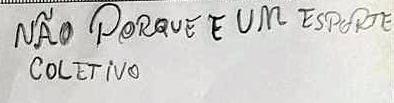 NÃO PORQUE E UM ESPORTE
COLETIVO